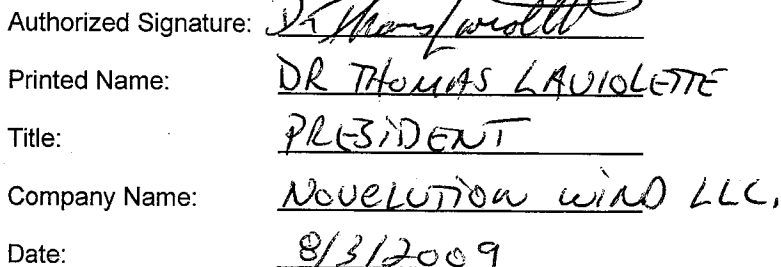 Authorized Signature: Dr Thomas Laviolette
Printed Name: DR THOMAS LAVIOLETTE
Title: PRESIDENT
Company Name: NOVELUTION WIND LLC.
Date: 8/3/2009